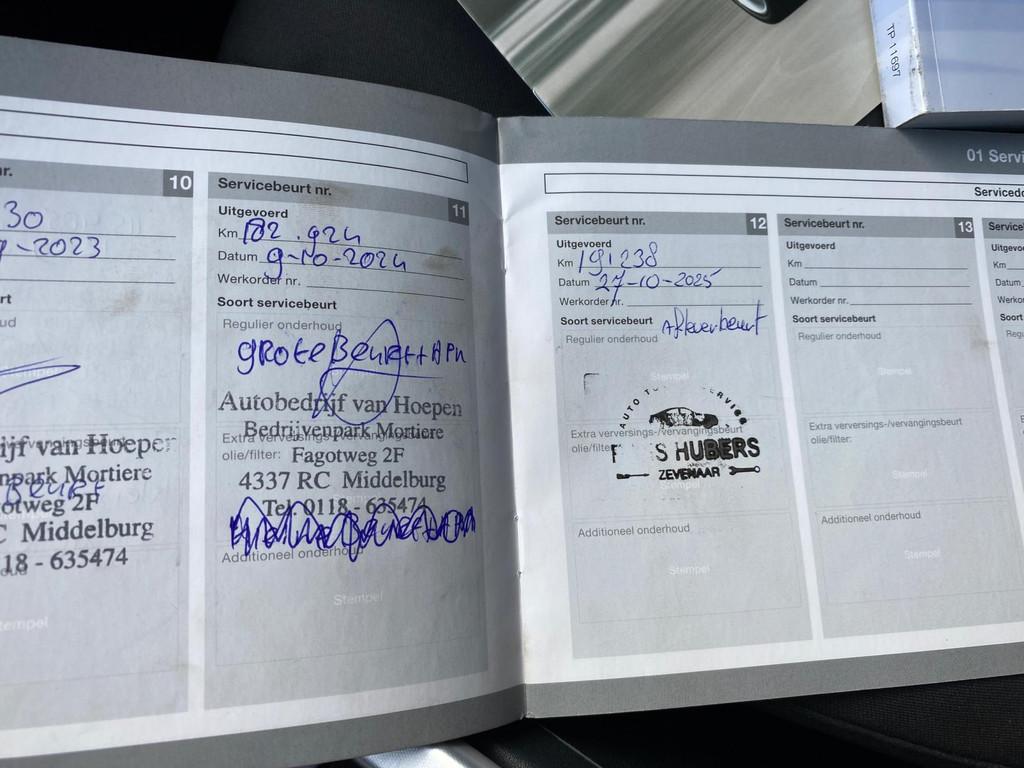 TP 11697
10
30
-2023
ijf van Hoepen
npark Mortiere
otweg 2F
C Middelburg
18 - 635474
Servicebeurt nr. 11
Uitgevoerd
Km 182.924
Datum 9-10-2024
Werkorder nr.
Soort servicebeurt
Regulier onderhoud
grote Beurt + APK
Autobedrijf van Hoepen
Bedrijvenpark Mortiere
Extra verversings-/vervangingsbeurt
olie/filter: Fagotweg 2F
4337 RC Middelburg
Tel. 0118 - 635474
Additioneel onderhoud
Stempel
01 Servi
Servicedo
Servicebeurt nr. 12
Uitgevoerd
Km 191238
Datum 27-10-2025
Werkorder nr.
Soort servicebeurt Afleverbeurt
Regulier onderhoud
Stempel
Extra verversings-/vervangingsbeurt
olie/filter:
S HUBERS
ZEVENAAR
Additioneel onderhoud
Stempel
Servicebeurt nr. 13
Uitgevoerd
Km
Datum
Werkorder nr.
Soort servicebeurt
Regulier onderhoud
Stempel
Extra verversings-/vervangingsbeurt
olie/filter:
Stempel
Additioneel onderhoud
Stempel
Service
Uitgevo
Km
Datum
Werko
Soort
Regu